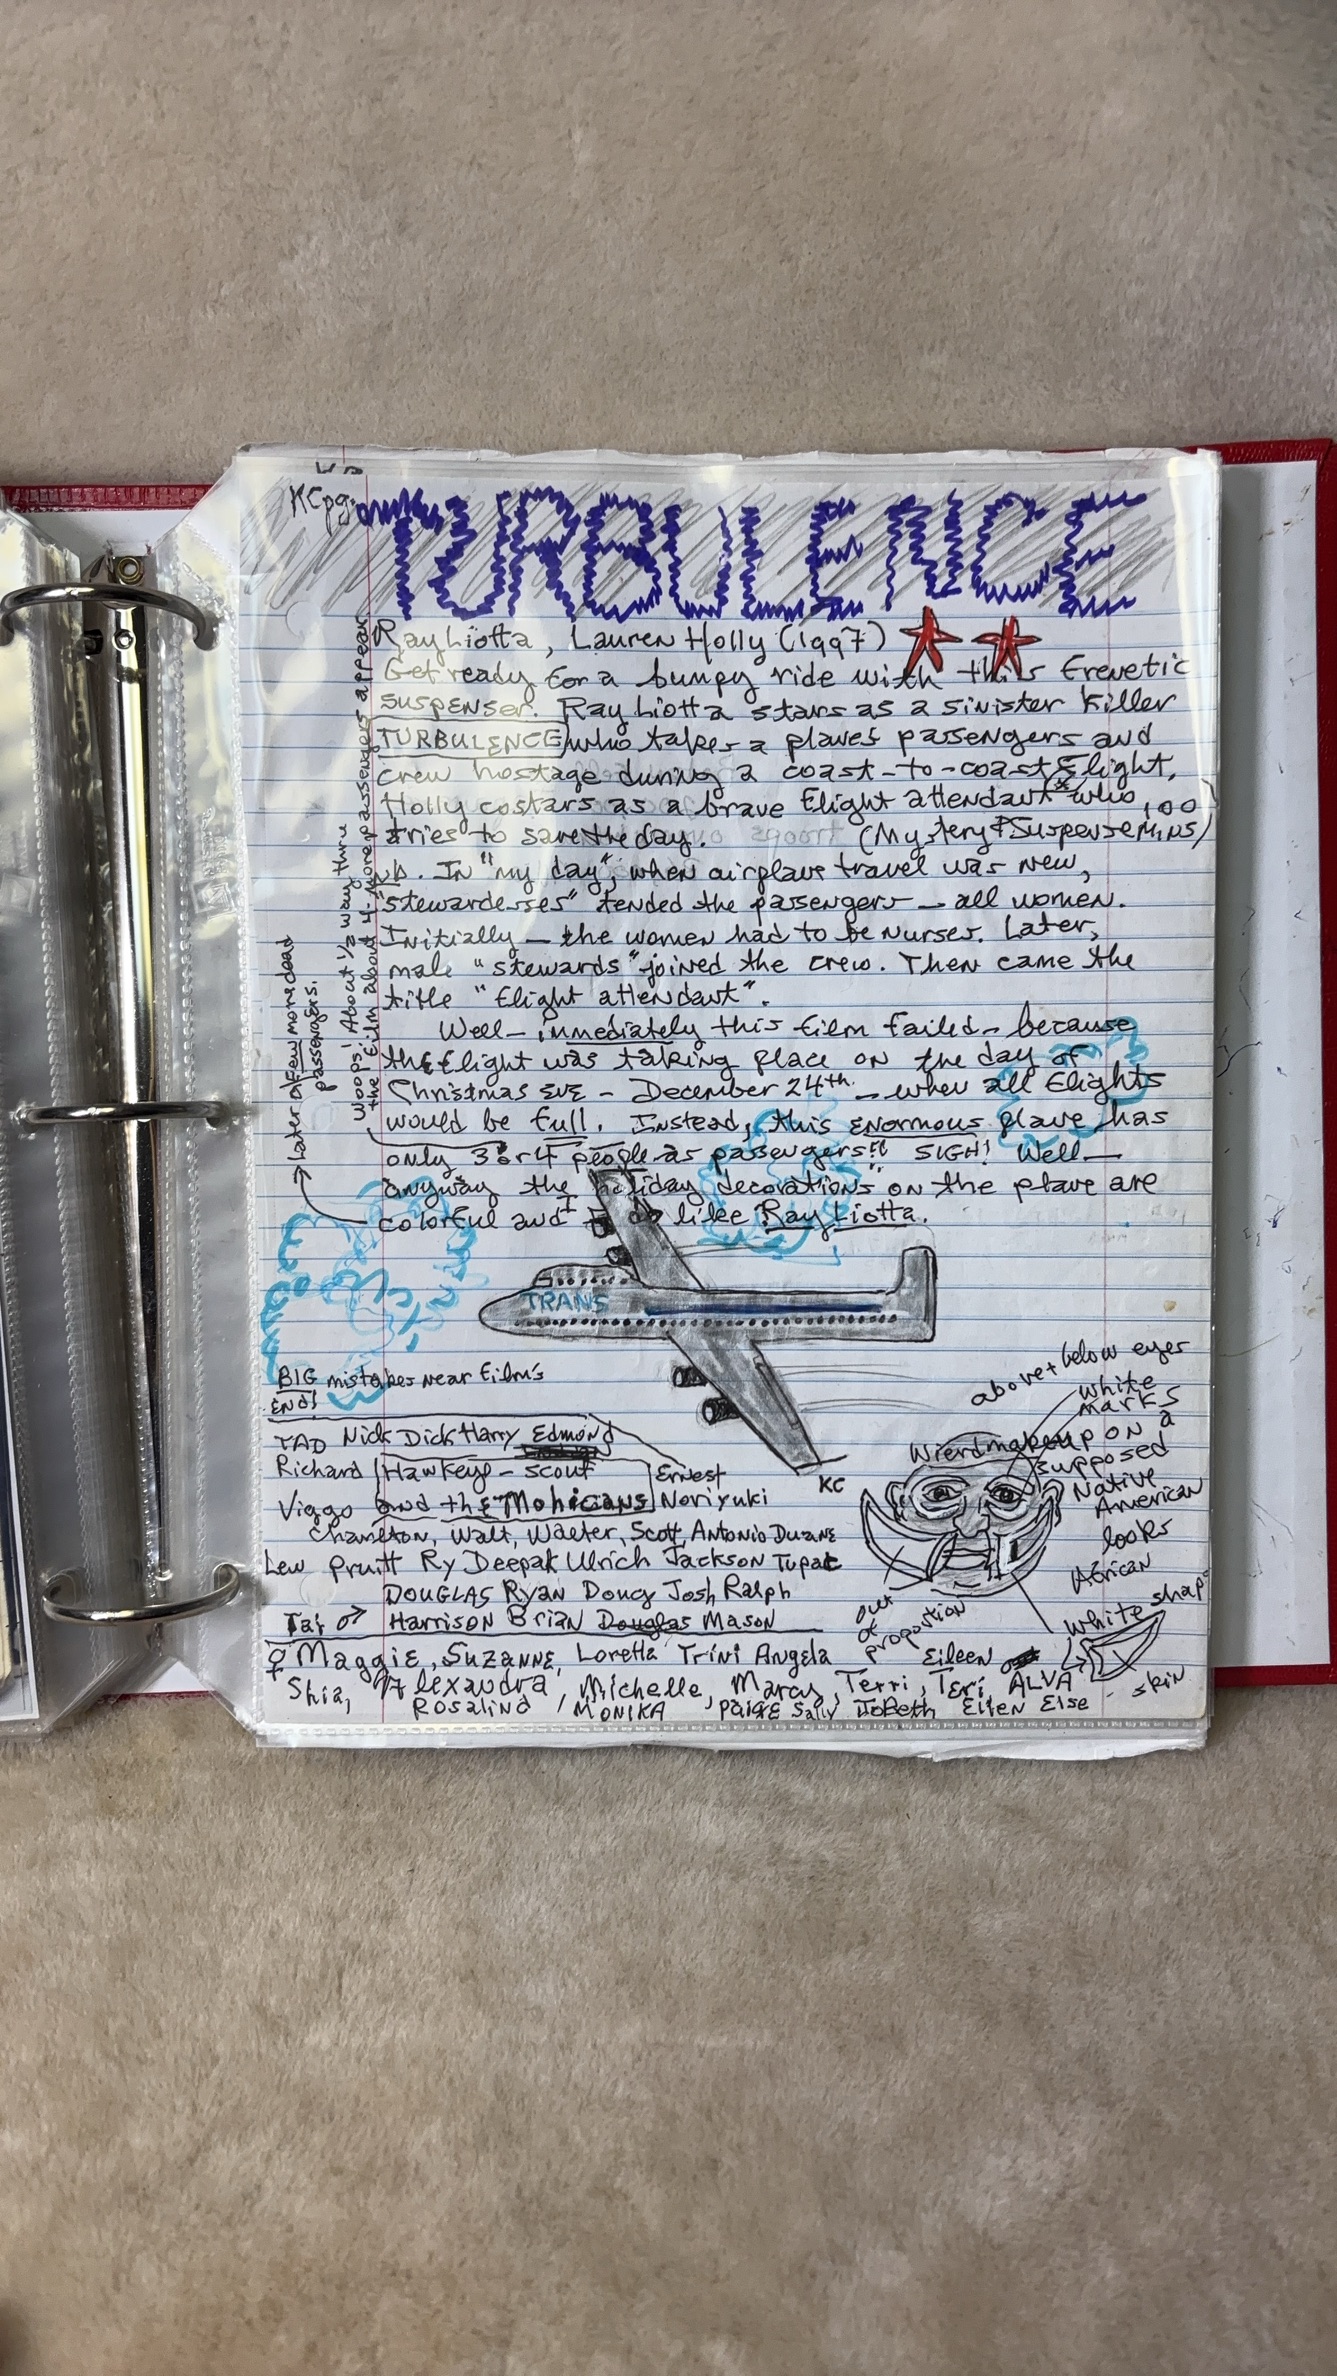 KC pg.
TURBULENCE
Ray Liotta, Lauren Holly (1997)
Get ready for a bumpy ride with this frenetic
suspenser. Ray Liotta stars as a sinister killer
TURBULENCE who takes a plane's passengers and
crew hostage during a coast-to-coast flight,
Holly costars as a brave flight attendant who
tries to save the day. (Mystery & Suspense 100 MINS)
NB. In "my day", when airplane travel was new,
"stewardesses" tended the passengers — all women.
Initially — the women had to be nurses. Later,
male "stewards" joined the crew. Then came the
title "flight attendant".
Well — immediately this film failed — because
the flight was taking place on the day of
Christmas Eve — December 24th — when all flights
would be full. Instead, this enormous plane has
only 3 or 4 people as passengers!! SIGH! Well —
anyway the "holiday decorations" on the plane are
colorful and I do like Ray Liotta.
Woops! About 1/2 way thru
the film about 4 more passengers appear
Later a few more dead
passengers.
TRANS
KC
BIG mistakes near film's
END!
TAD Nick Dick Harry Edmond
Richard Hawkeye - scout Ernest
Viggo and the Mohicans Noriyuki
Charlton, Walt, Walter, Scott, Antonio Duane
Lew Pruitt Ry Deepak Ulrich Jackson Tupac
DOUGLAS Ryan Doucy Josh Ralph
Tai ♂ Harrison Brian Douglas Mason
♀ Maggie, Suzanne, Loretta Trini Angela Eileen
Shia, Alexandra, Michelle, Marcy, Terri, Teri, ALVA
Rosalind, MONIKA Paige Sally JoBeth Eilen Else
above + below eyes
white
marks
Wierd makeup on a
supposed
Native
American
looks
African
out
of
proportion
white shape
skin